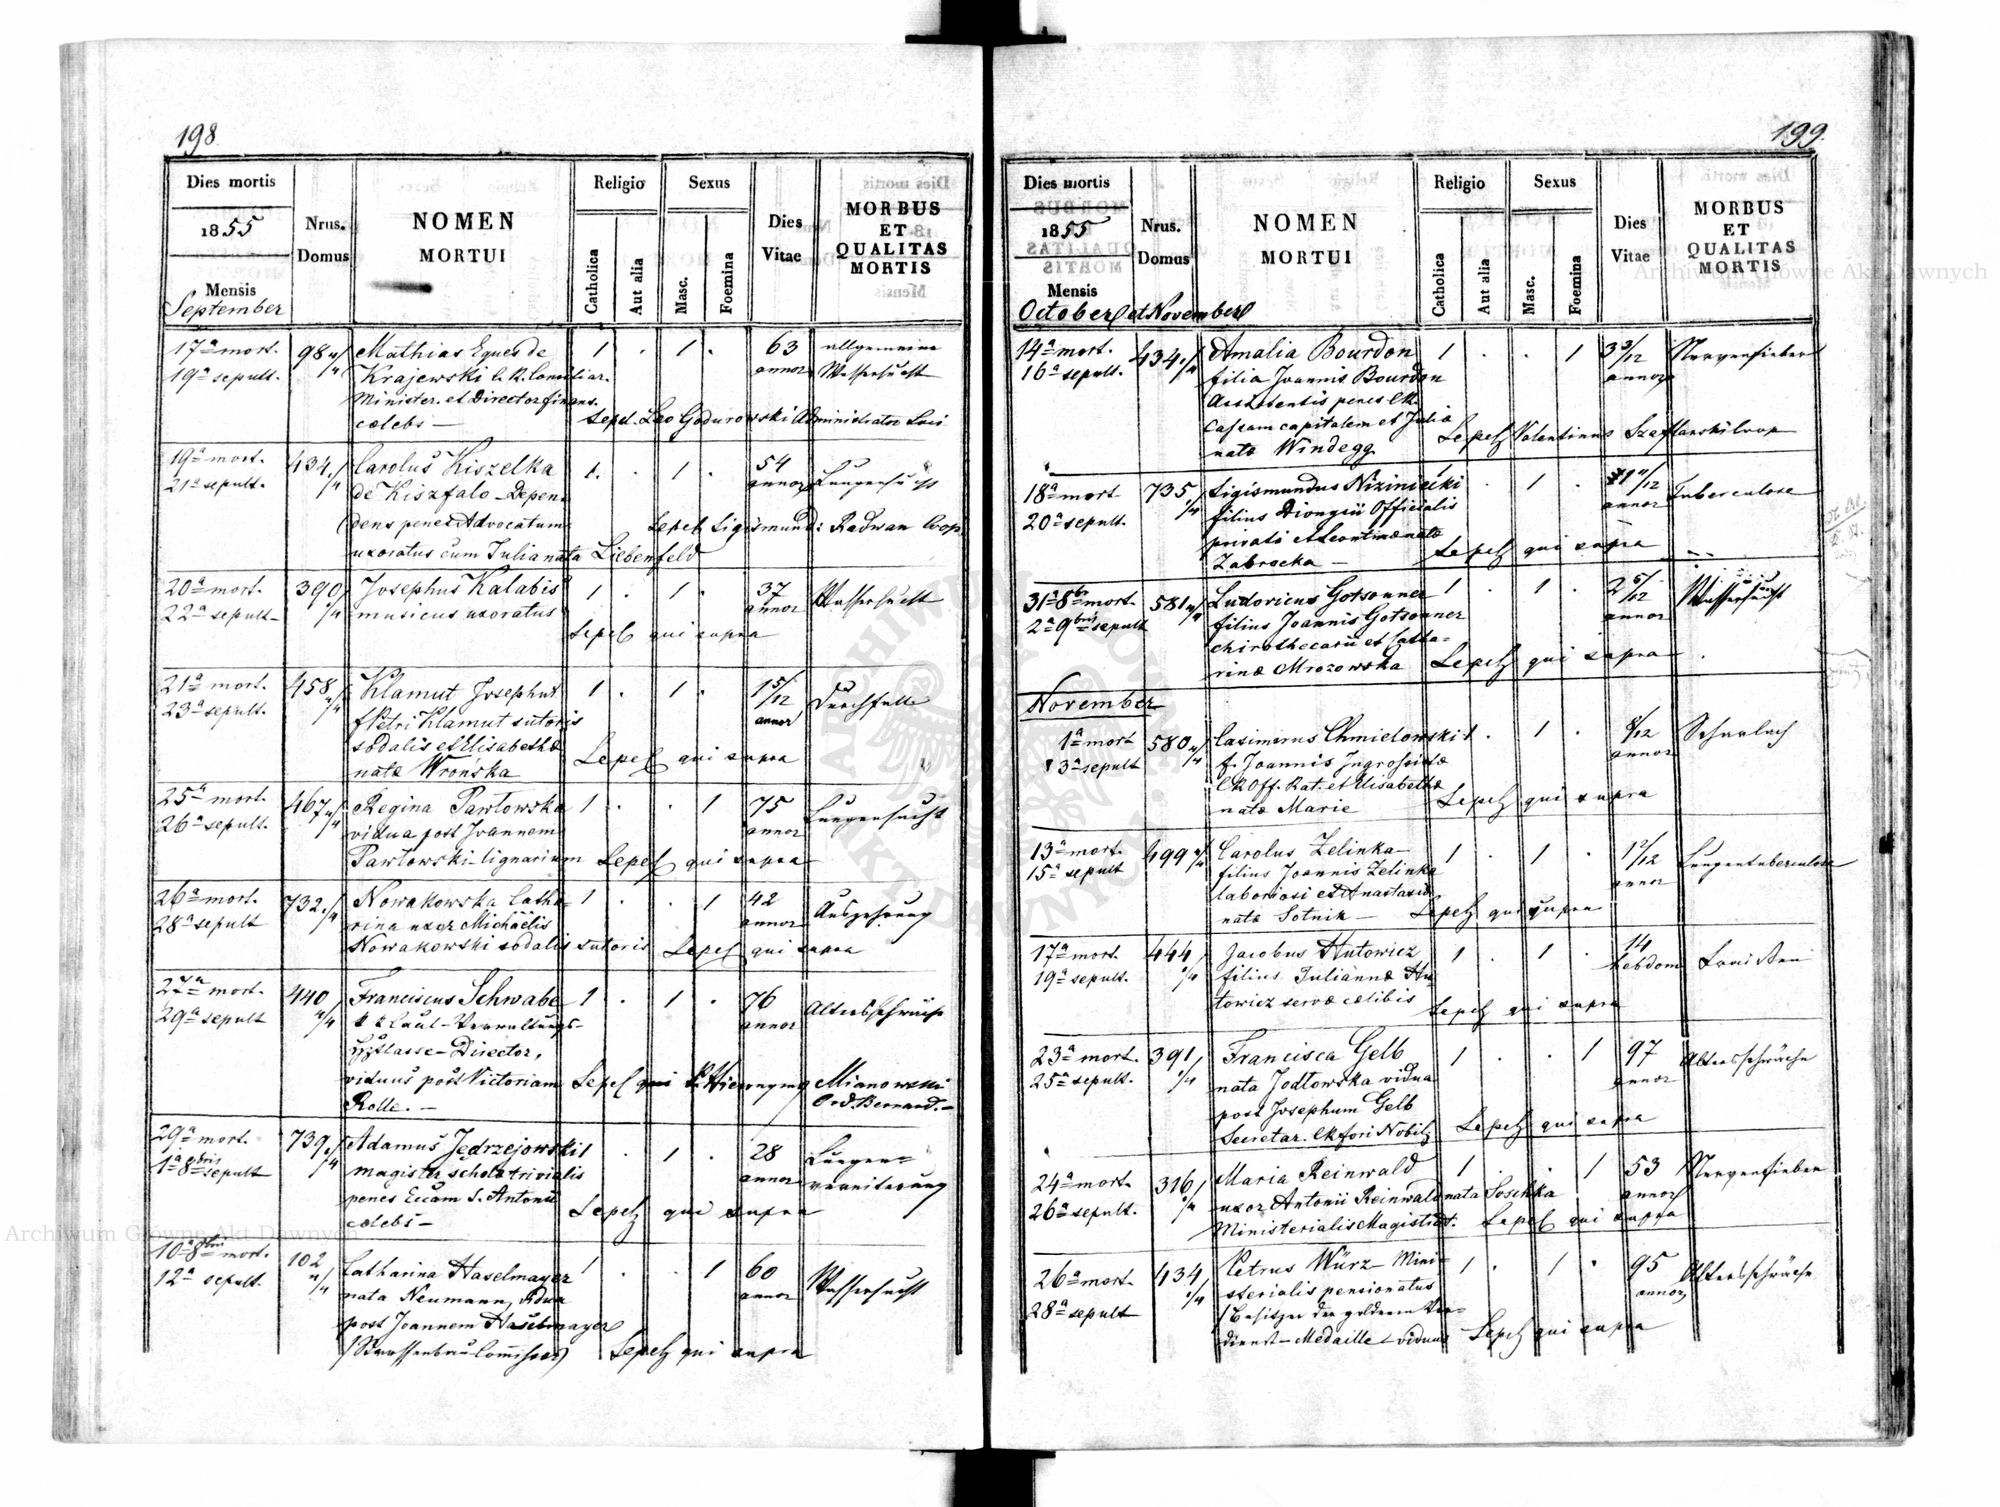 198
Dies mortis
1855
Mensis
September
Nrus. Domus
NOMEN
MORTUI
Religio
Catholica
Aut alia
Sexus
Masc.
Foemina
Dies Vitae
MORBUS
ET
QUALITAS
MORTIS
17a mort. 98 Mathias Eques de 1 . 1 . 63 allgemeine
19a sepult. Krajewski C. R. Consiliar. annor Wassersucht
Minister. et Director finans.
caelebs — Sepel. Leo Godurowski Administrator Loci
19a mort. 434 Carolus Kiszelka 1 . 1 . 54
21a sepult. de Kiszfalo - Depen annor Lungensucht
dens penes Advocatum Sepel Sigismund: Radwan Coop
uxoratus cum Julia nata Liebenfeld
20a mort. 390 Josephus Kalabis 1 . 1 . 37 Wassersucht
22a sepult musicus uxoratus annor
Sepel qui supra
21a mort. 458 Klamut Josephus 1 . 1 . 1 5/12 Durchfall
23a sepult. f Petri Klamut sutoris annor
sodalis et Elisabethae
nata Wrońska Sepel qui supra
25a mort. 467 Regina Pawłowska 1 . . 1 75 Lungensucht
26a sepult. vidua post Joannem annor
Pawłowski lignarium Sepel qui supra
26a mort. 732 Nowakowska Catha- 1 . . 1 42 Auszehrung
28a sepult rina uxor Michaëlis annor
Nowakowski sodalis sutoris Sepel qui supra
27a mort. 440 Franciscus Schwabe 1 . 1 . 76 Altersschwäche
29a sepult k k Verwaltungs- annor
Director,
viduus post Victoriam Sepel qui P. Hieronymo Mianowski
Rolle. — Ord. Bernard. —
29a mort. 739 Adamus Jędrzejowski 1 . 1 . 28 Lungen-
1a 8bris sepult magister schola trivialis annor vereiterung
penes Eccam S. Antonii
caelebs — Sepelz qui supra
10a 8bris mort. 102 Catharina Haselmayer 1 . . 1 60 Wassersucht
12a sepult. nata Neumann, vidua annor
post Joannem Haselmayer
Sepelz qui supra
199.
Dies mortis
1855
Mensis
October et November
Nrus. Domus
NOMEN
MORTUI
Religio
Catholica
Aut alia
Sexus
Masc.
Foemina
Dies Vitae
MORBUS
ET
QUALITAS
MORTIS
14a mort. 434 Amalia Bourdon 1 . . 1 3 3/12 Nervenfieber
16a sepult. filia Joannis Bourdon annor
penes CR.
Casam capitalem et Julia
nata Windegg Sepelz Valentinus Szaflarski Coop
18a mort 735 Sigismundus Niziniecki . 1 . 11/12 Tuberculose
20a sepult. filius Dionysii Officialis annor
privati et Leontinae nata
Zabrocka — Sepelz qui supra
31a 8br mort. 581 Ludovicus Gotsonner 1 . 1 . 2 5/12 Wassersucht
2a 9bris sepult filius Joannis Gotsonner annor
chirothecarii et Catha-
rinae Mrozowska Sepelz qui supra
November
1a mort 580 Casimirus Chmielowski 1 . 1 . 8/12 Scharlach
3a sepult f. Joannis Ingrosistae annor
CR Off. Rat. et Elisabethae
nata Marie Sepelz qui supra
13a mort. 499 Carolus Zelinka 1 . 1 . 1 2/12 Lungentuberculose
15a sepult filius Joannis Zelinka annor
laboriosi et Anastasia
nata Sotnik — Sepelz qui supra
17a mort. 444 Jacobus Hutowicz 1 . 1 . 14
19a sepult. filius Julianna Hu hebdom
towicz serva caelibis Sepelz qui supra
23a mort. 391 Francisca Gelb 1 . . 1 97 Altersschwäche
25a sepult. nata Jodłowska vidua annor
post Josephum Gelb
Secretar. CR fori Nobil. Sepelz qui supra
24a mort. 316 Maria Reinwald 1 . . 1 53 Nervenfieber
26a sepult. uxor Antonii Reinwald nata Soschka annor
Ministerialis Magistrat. Sepelz qui supra
26a mort. 434 Petrus Würz Mini- 1 . 1 . 95 Altersschwäche
28a sepult sterialis pensionatus annor
Besitzer der goldenen Ver-
dienst-Medaille viduus Sepelz qui supra
Archiwum Główne Akt Dawnych
Archiwum Główne Akt Dawnych